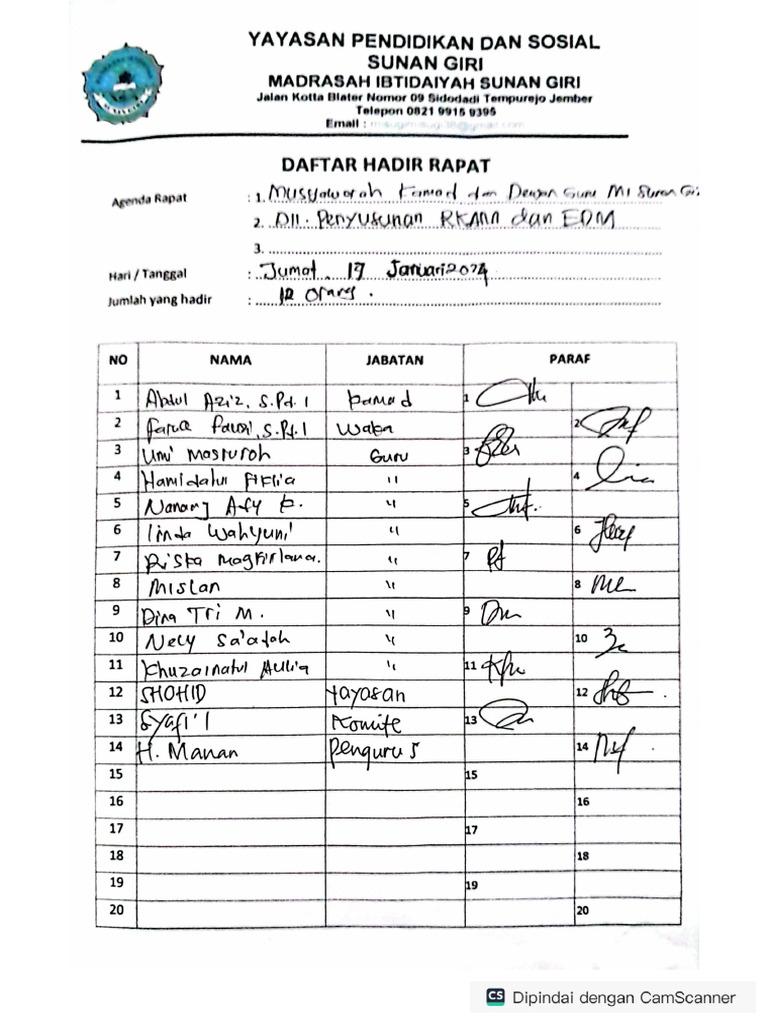 YAYASAN PENDIDIKAN DAN SOSIAL
SUNAN GIRI
MADRASAH IBTIDAIYAH SUNAN GIRI
Jalan Kotta Blater Nomor 09 Sidodadi Tempurejo Jember
Telepon 0821 9915 9395
Email :
DAFTAR HADIR RAPAT
Agenda Rapat : 1. Musyaworah Kamad dan Dewan Guru MI Sunan Giri
2. Dll. Penyusunan RKAM dan EDM
3.
Hari / Tanggal : Jumat, 19 Januari 2024
Jumlah yang hadir : 12 Orang.
NO NAMA JABATAN PARAF
1 Abdul Aziz, S.Pd.I Kamad 1
2 Faruq Fauzi, S.Pd.I Waka 2
3 Umi Masruroh Guru 3
4 Hamidatul " 4
5 Nanang Afy " 5
6 Linda Wahyuni " 6
7 Riska " 7
8 Mislan " 8
9 Dina Tri M. " 9
10 Nely Sa'adah " 10
11 Khuzainatul Aulia " 11
12 SHOHID Yayasan 12
13 Syafi'I Komite 13
14 H. Manan Pengurus 14
15 15
16 16
17 17
18 18
19 19
20 20
CS Dipindai dengan CamScanner